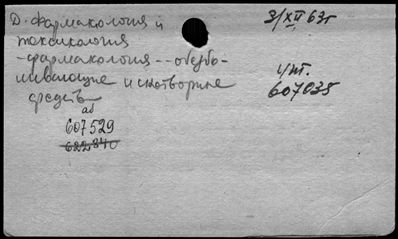 Д. Фармакология и
токсикология
-фармакология -- обезбо-
ливающие и снотворные
средств
аб
607529
622840
3/XII 63г
1/ш.
607035